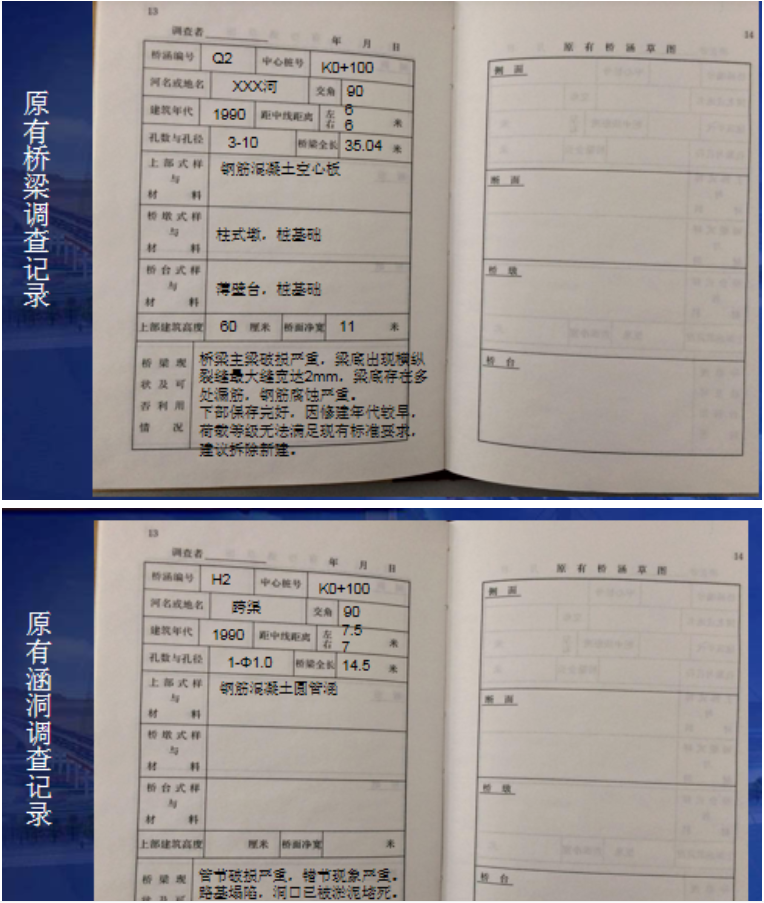 原有桥梁调查记录
13
调查者
年 月 日
桥涵编号 Q2 中心桩号 K0+100
河名或地名 XXX河 交角 90
建筑年代 1990 距中线距离 左 6 米
右 6
孔数与孔径 3-10 桥梁全长 35.04 米
上部式样
与
材料
钢筋混凝土空心板
桥墩式样
与
材料
柱式墩,桩基础
桥台式样
与
材料
薄壁台,桩基础
上部建筑高度 60 厘米 桥面净宽 11 米
桥梁现
状及可
否利用
情况
桥梁主梁破损严重,梁底出现横纵
裂缝最大缝宽达2mm,梁底存在多
处漏筋,钢筋腐蚀严重。
下部保存完好,因修建年代较早,
荷载等级无法满足现有标准要求,
建议拆除新建。
14
原有桥涵草图
侧面
断面
桥墩
桥台
原有涵洞调查记录
13
调查者
年 月 日
桥涵编号 H2 中心桩号 K0+100
河名或地名 跨渠 交角 90
建筑年代 1990 距中线距离 左 7.5 米
右 7
孔数与孔径 1-Φ1.0 桥梁全长 14.5 米
上部式样
与
材料
钢筋混凝土圆管涵
桥墩式样
与
材料
桥台式样
与
材料
上部建筑高度 厘米 桥面净宽 米
桥梁现
状及可
管节破损严重,错节现象严重。
路基塌陷,洞口已被淤泥堵死。
14
原有桥涵草图
侧面
断面
桥墩
桥台